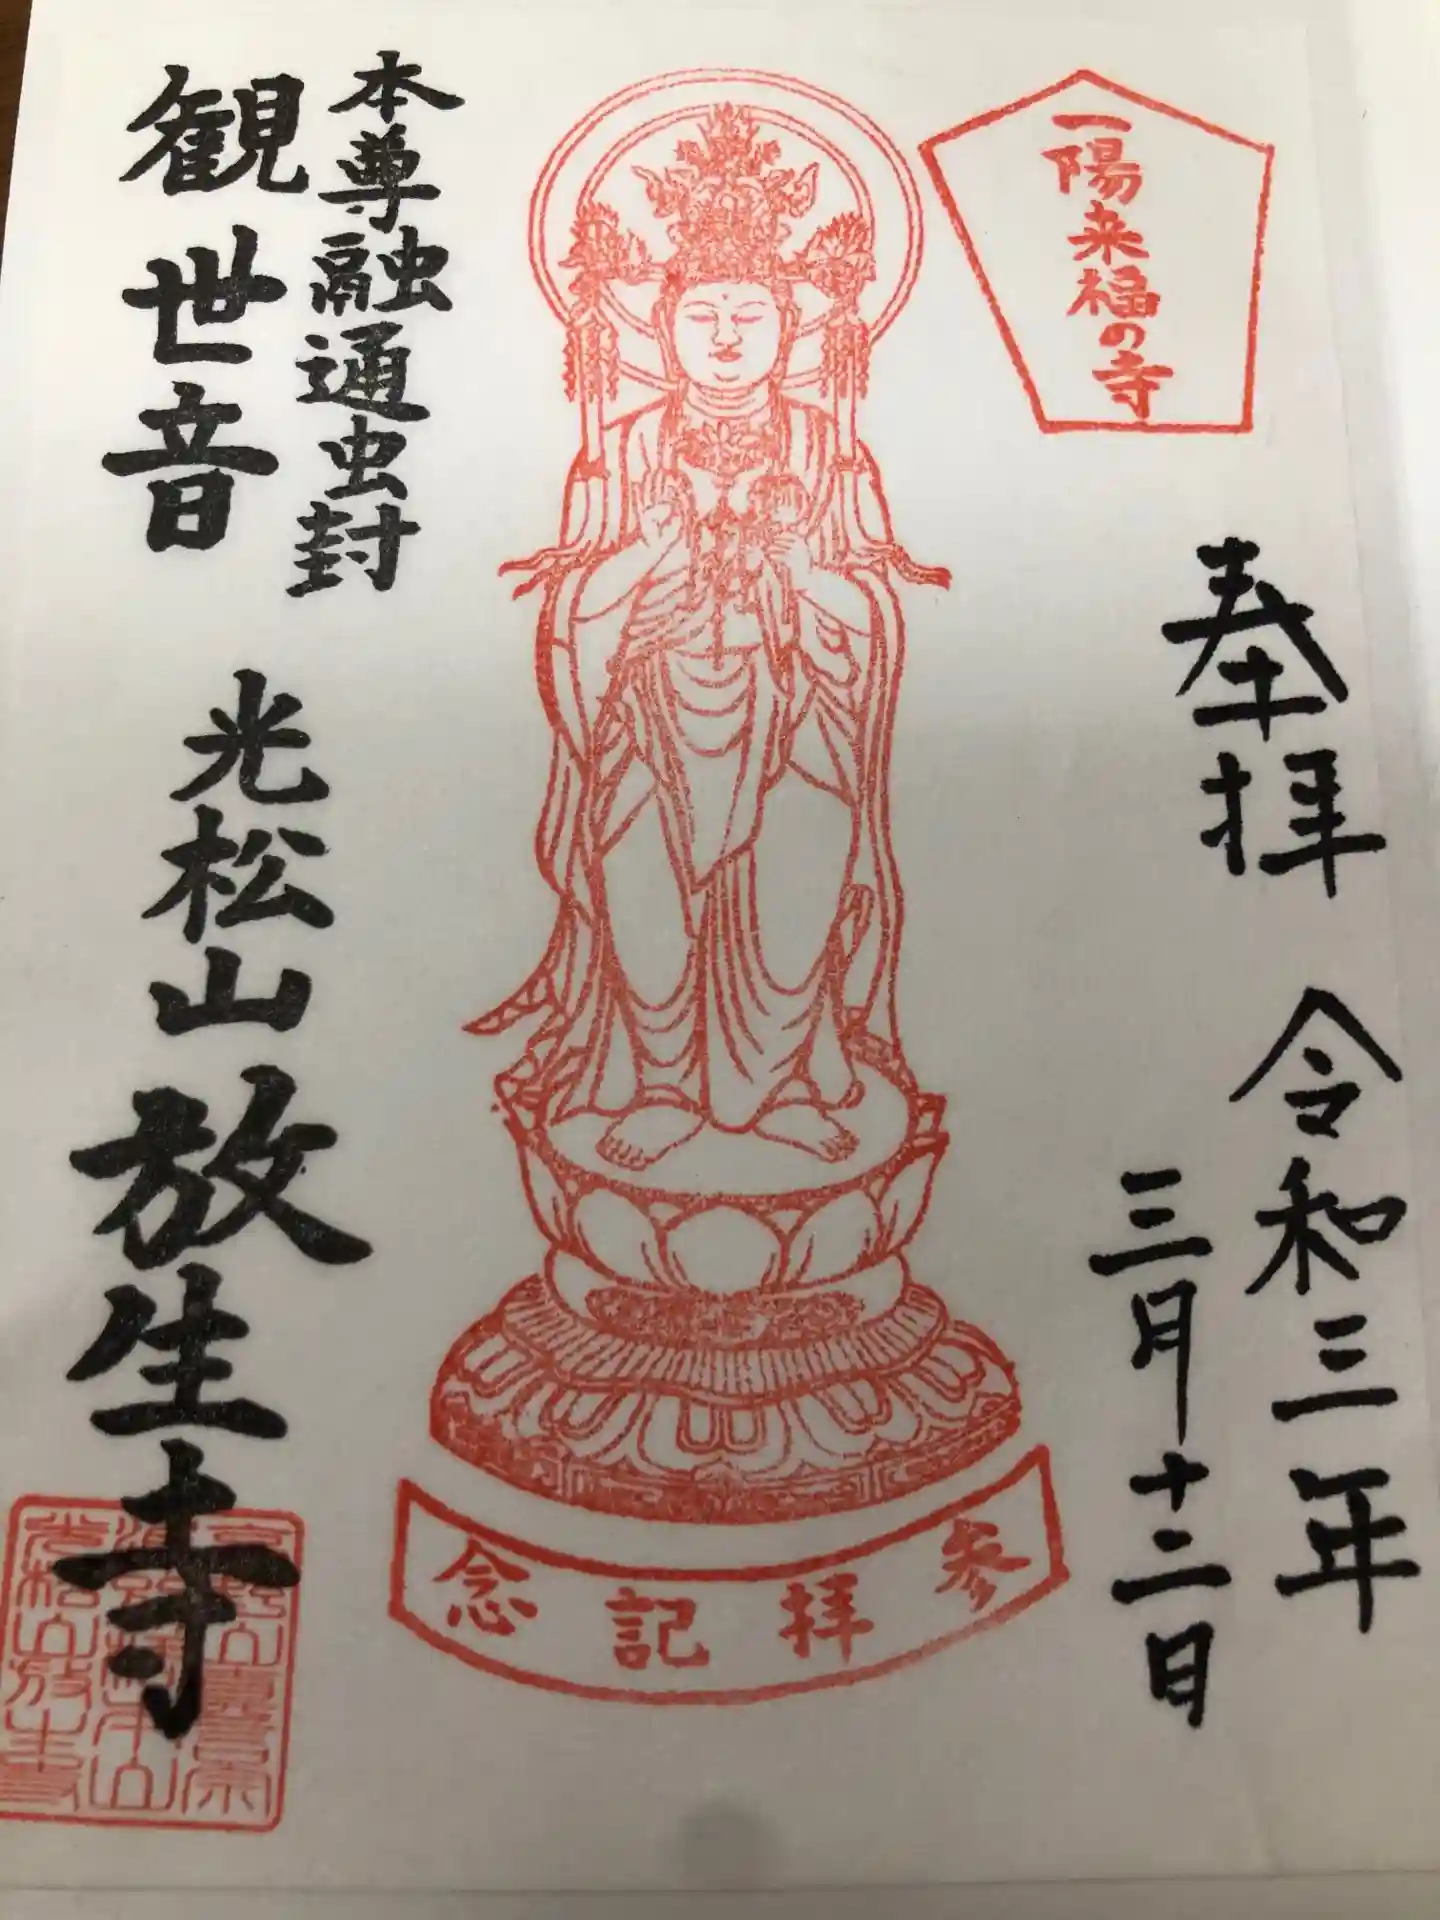 一陽来福の寺
奉拝 令和三年
三月十二日
参拝記念
本尊融通虫封
観世音 光松山 放生寺